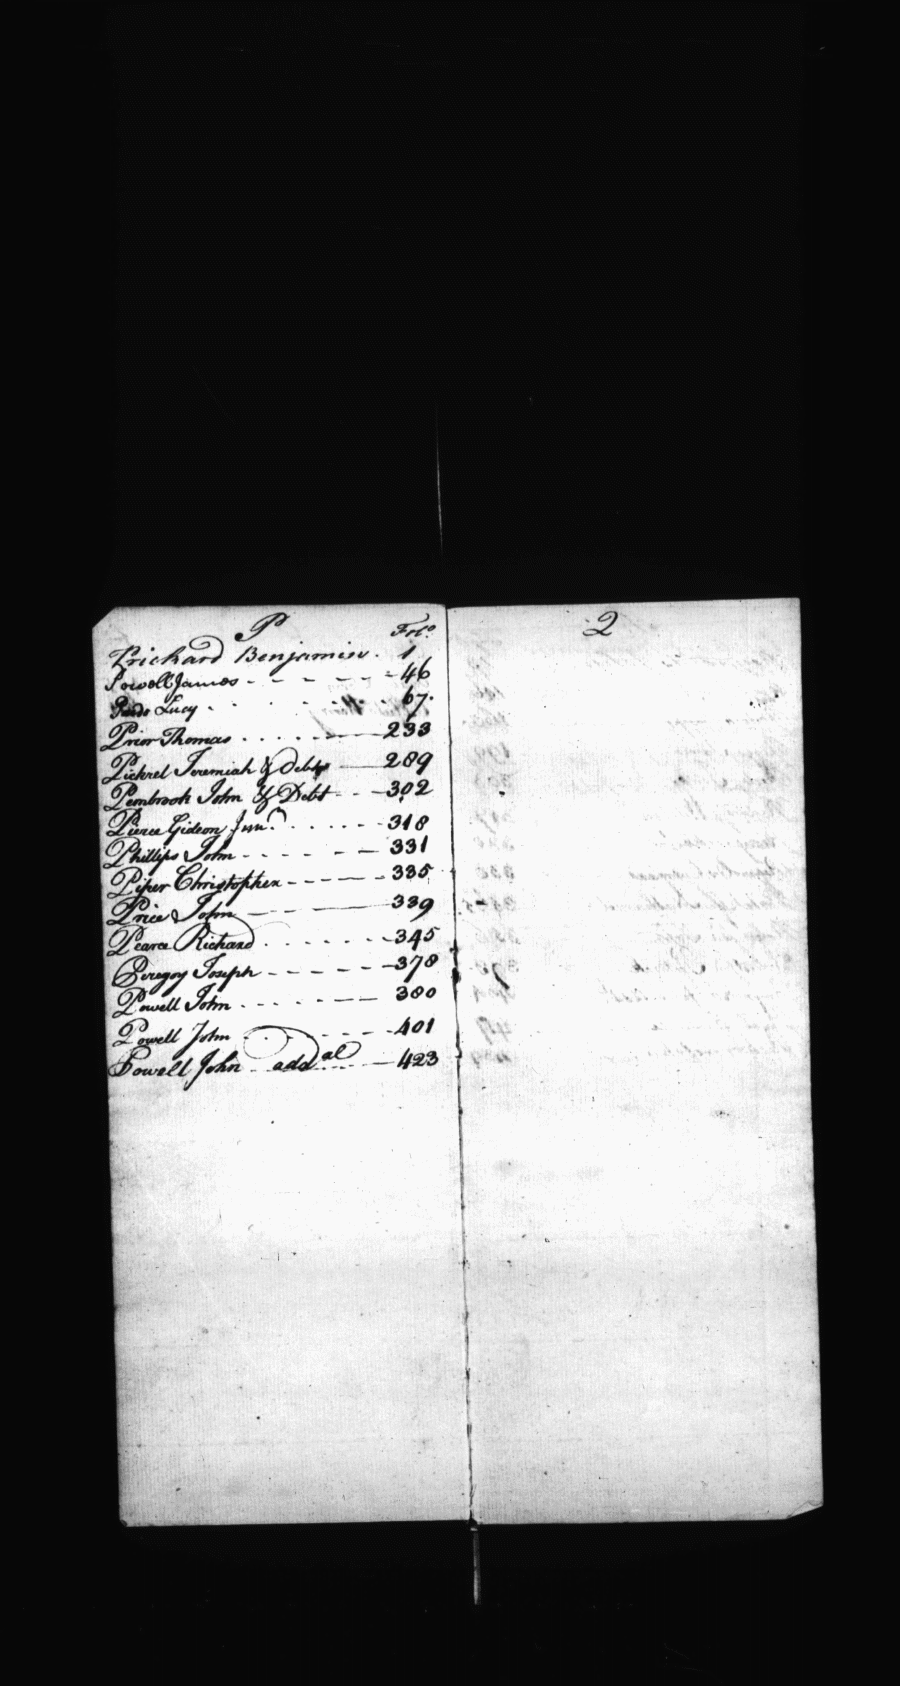 P
Folo.
Prichard Benjamin. 1
Powell James - - - - - 46
Lucy - - - - 67.
Prior Thomas . . . . . 233
Pickrel Jeremiah & Debt — 289
Pembrook John & Debt - - - 302
Pierce Gideon Junr. . . . . . 318
Phillips John - - - - - - 331
Piper Christopher - - - - - 335
Price John — — 339
Pearce Richard . . . . . . 345
Peregoy Joseph - - - - - 378
Powell John . . . . - - - 380
Powell John . . . . . . . 401
Powell John - addal . . . 423
Q